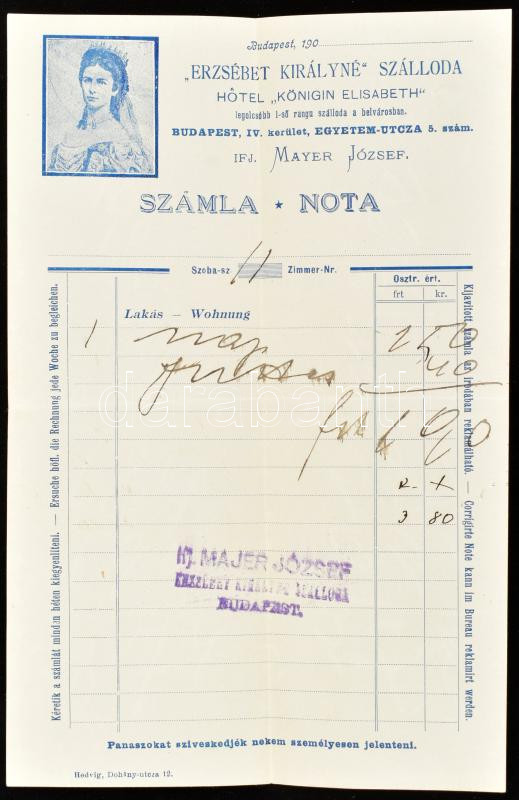 Budapest, 190
„ERZSÉBET KIRÁLYNÉ“ SZÁLLODA
HÔTEL „KÖNIGIN ELISABETH“
legolcsóbb I-ső rangu szálloda a belvárosban.
BUDAPEST, IV. kerület, EGYETEM-UTCZA 5. szám.
IFJ. MAYER JÓZSEF.
SZÁMLA ★ NOTA
Szoba-sz 11 Zimmer-Nr.
Osztr. ért.
frt kr.
Lakás — Wohnung
1 nap 1 50
40
frt 1 90
K. +
3 80
Kéretik a számlát mind.n héten kiegyenlíteni. — Ersuche höfl. die Rechnung jede Woche zu begleichen.
Kijavitott számla az irodában reklamálható. — Corrigirte Note kann im Bureau reklamirt werden.
darabanth
Ifj. MAJER JÓZSEF
ERZSÉBET KIRÁLYNÉ SZÁLLODA
BUDAPEST.
Panaszokat sziveskedjék nekem személyesen jelenteni.
Hedvig, Dohány-utcza 12.